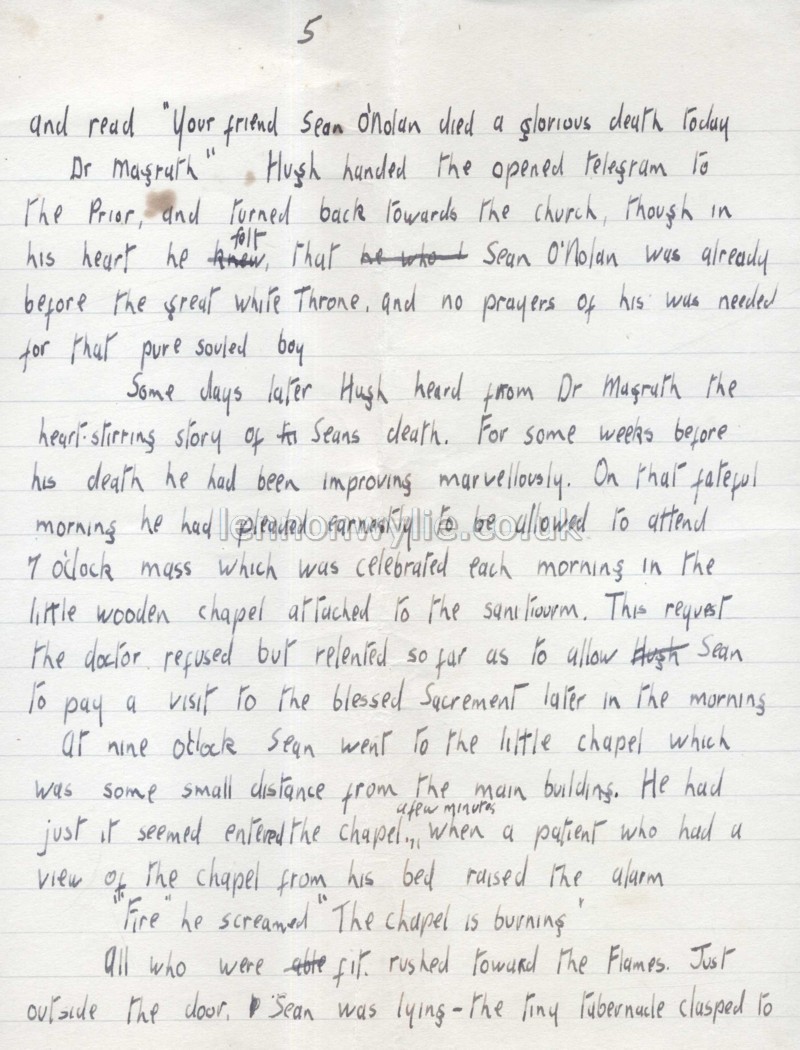 5
and read "Your friend Sean O'Nolan died a glorious death today
Dr Magrath" Hugh handed the opened telegram to
the Prior, and turned back towards the church, though in
felt
his heart he knew, that he who Sean O'Nolan was already
before the great white Throne, and no prayers of his was needed
for that pure souled boy
Some days later Hugh heard from Dr Magrath the
heart-stirring story of Seans death. For some weeks before
his death he had been improving marvellously. On that fateful
morning he had pleaded earnestly to be allowed to attend
lennonwylie.co.uk
7 o'clock mass which was celebrated each morning in the
little wooden chapel attached to the sanitiourm. This request
the doctor refused but relented so far as to allow Hugh Sean
to pay a visit to the blessed Sacrement later in the morning
At nine o'clock Sean went to the little chapel which
was some small distance from the main building. He had
a few minutes
just it seemed entered the chapel., when a patient who had a
view of the chapel from his bed raised the alarm
"Fire" he screamed "The chapel is burning'
All who were able fit. rushed toward the Flames. Just
outside the door, Sean was lying - the tiny tabernacle clasped to